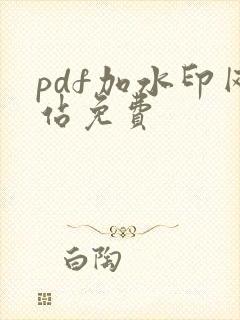 pdf加水印网
站免费
白陶